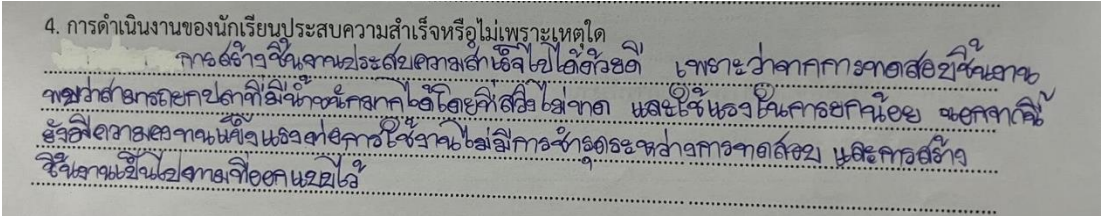 4. การดำเนินงานของนักเรียนประสบความสำเร็จหรือไม่เพราะเหตุใด
การสร้างชิ้นงานประสบความสำเร็จไปได้ด้วยดี เพราะว่าจากการทดสอบชิ้นงาน
พบว่าสามารถยกปลาที่มีน้ำหนักมากได้โดยที่สวิงไม่ขาด และใช้แรงในการยกน้อย นอกจากนี้
ยังมีความคงทนแข็งแรงต่อการใช้งานไม่มีการชำรุดระหว่างการทดสอบ และการสร้าง
ชิ้นงานเป็นไปตามที่ออกแบบไว้